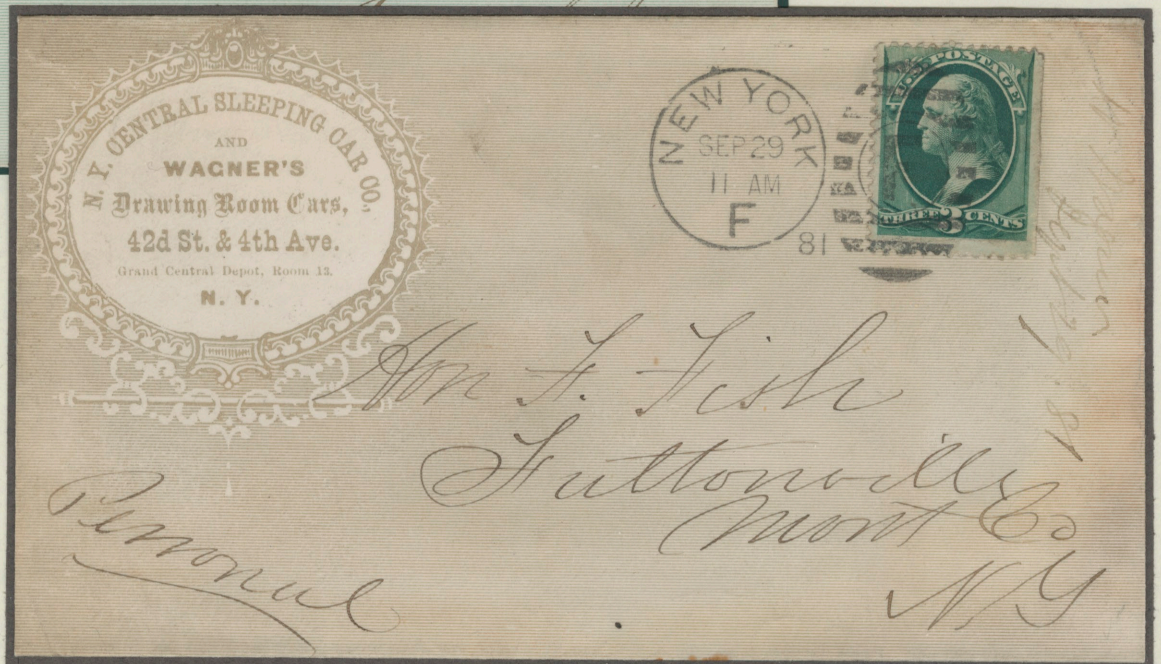 N. Y. CENTRAL SLEEPING CAR CO.
AND
WAGNER'S
Drawing Room Cars,
42d St. & 4th Ave.
Grand Central Depot, Room 13.
N. Y.
NEW YORK
SEP 29
11 AM
F
81
U.S. POSTAGE
THREE 3 CENTS
Hon F. Fish
Fultonville
Mont Co
N Y
Personal
Sept 29. 81